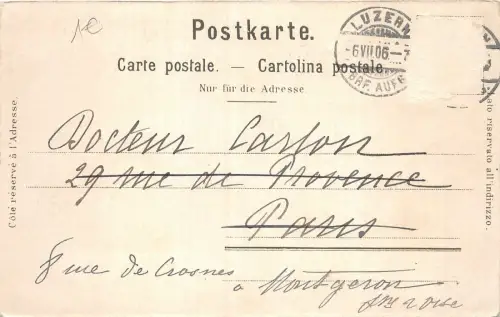 1€
Postkarte.
LUZERN
-6VII06-
BRF. AUFG
Carte postale. — Cartolina postale
Nur für die Adresse
Côté réservé à l'Adresse.
lato riservato all'indirizzo.
Docteur Carlon
29 rue de Provence
Paris
8 rue de Crosnes
à Montgeron